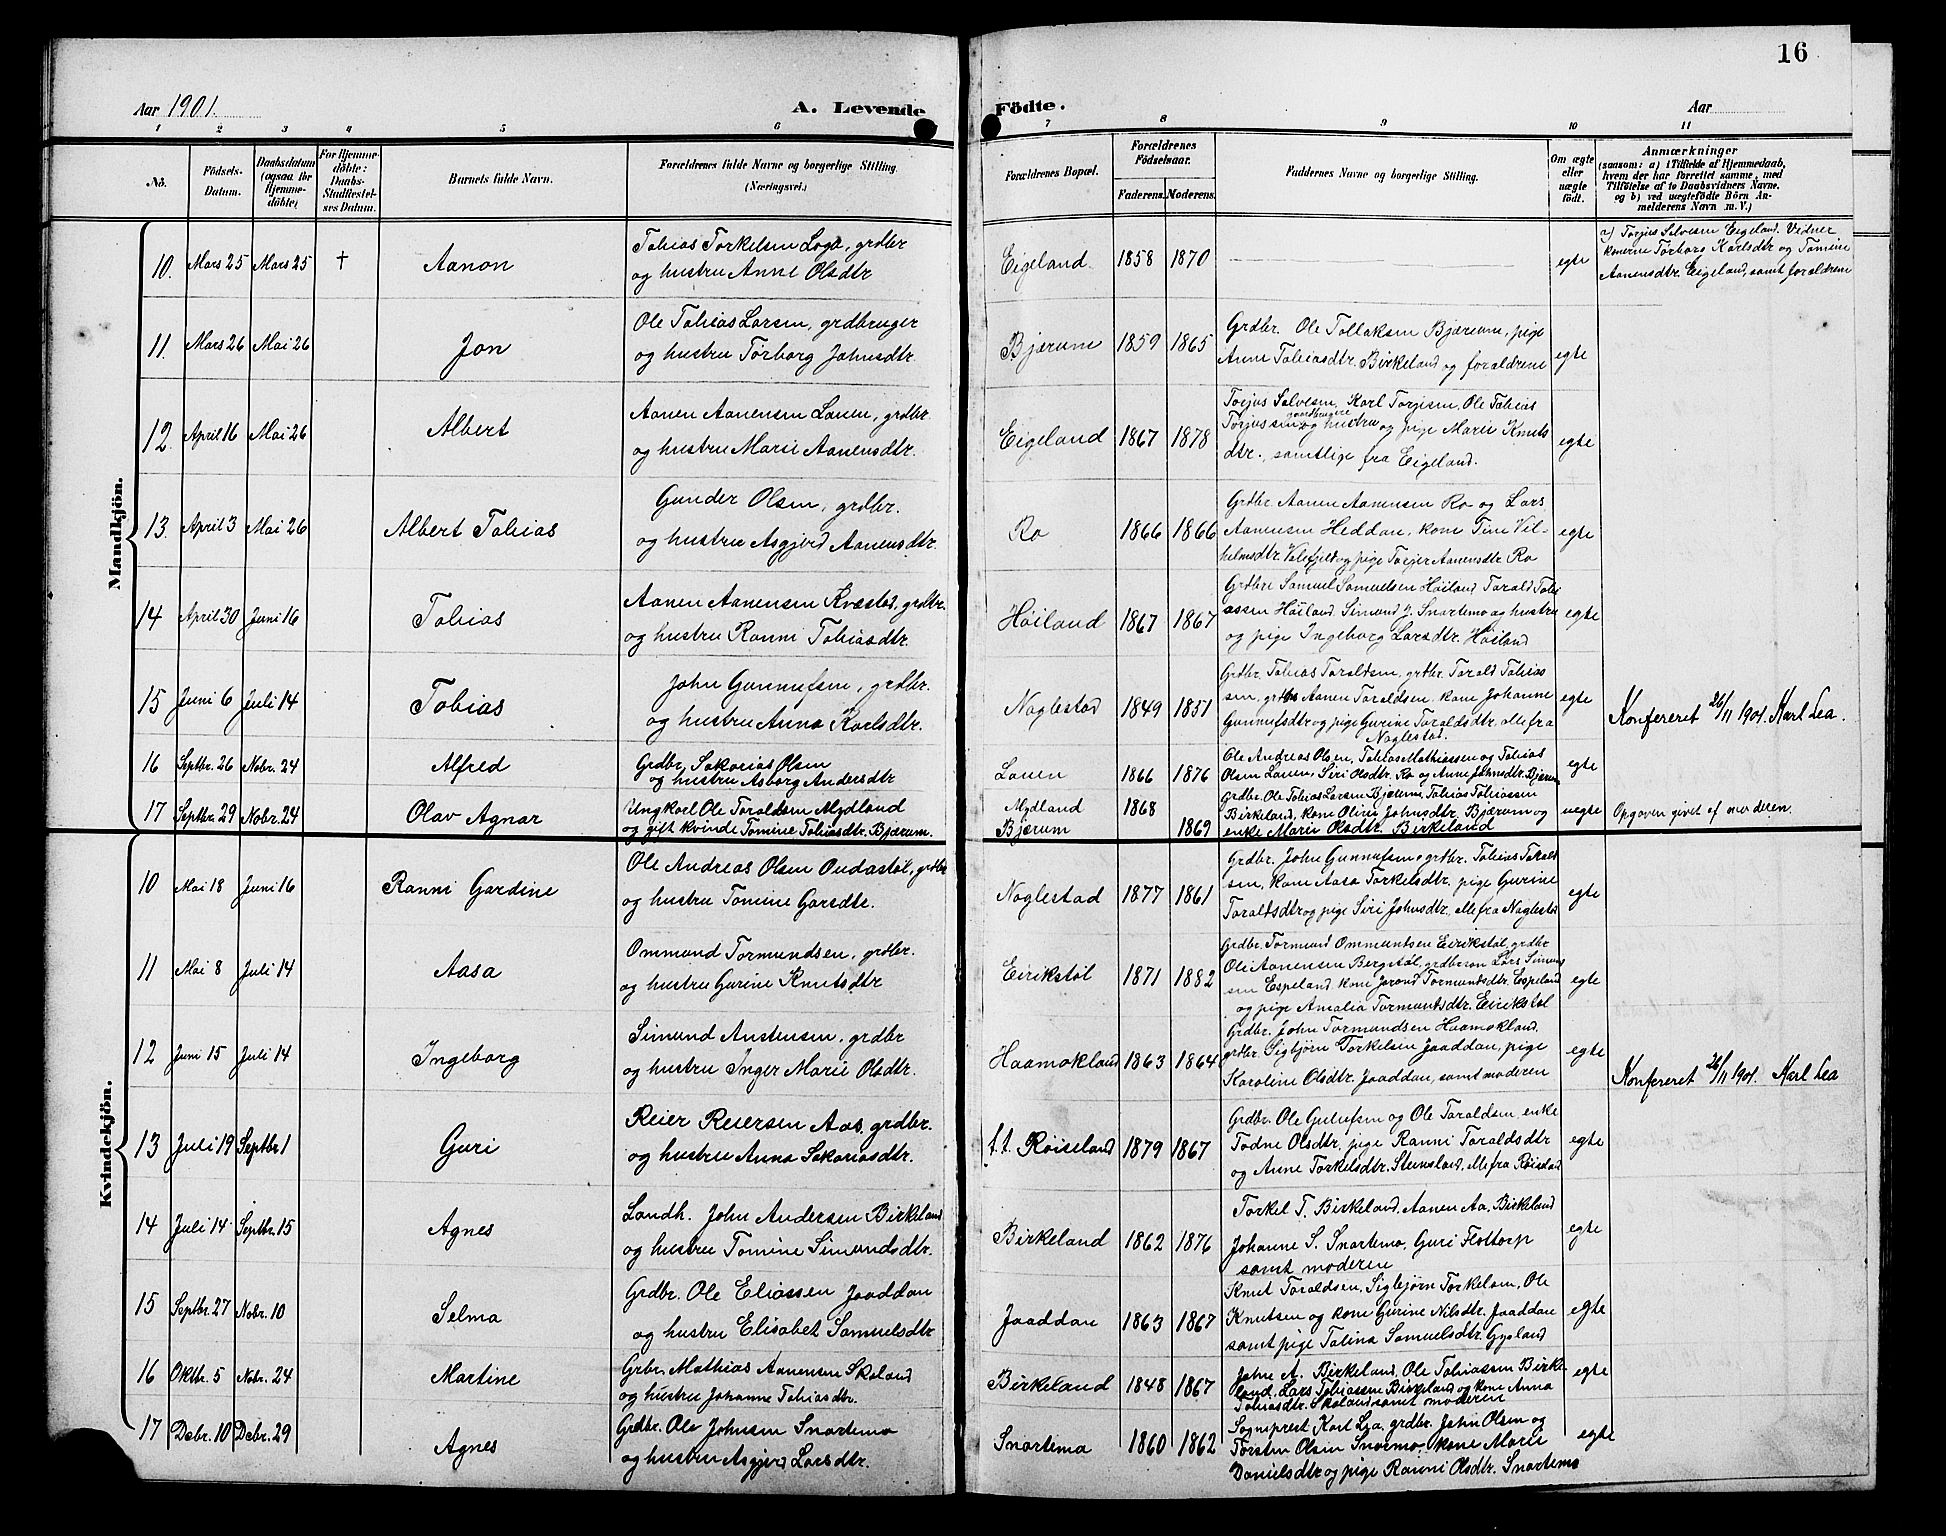 16
Aar 1901.
A. Levende Födte.
Aar
1 2 3 4 5 6 7 8 9 10 11
No.
Födsels-Datum.
Daabsdatum (ogsaa for Hjemme-döbte)
For Hjemme-döbte: Daabs-Stadfæstel-ses Datum.
Barnets fulde Navn.
Forældrenes fulde Navne og borgerlige Stilling (Næringsvei.)
Forældrenes Bopæl.
Forældrenes Födselsaar.
Faderens. Moderens.
Faddernes Navne og borgerlige Stilling.
Om ægte eller uægte födt.
Anmærkninger
(saasom: a) i Tilfælde af Hjemmedaab,
hvem der har forrettet samme, med
Tilföielse af to Daabsvidners Navne.
og b) ved uægtefödte Börn An-
melderens Navn m. V.)
Mandkjön.
10. Mars 25 Mars 25 † Aanon
Tobias Torkelsen Loga, grdbr
og hustru Anne Olsdtr
Eigeland 1858 1870 egte
a) Torjus Salvesen Eigeland. Vidner
konerne Torborg Karlsdtr og Tomine
Aanensdtr. Eigeland, samt forældrene
11. Mars 26 Mai 26 Jon
Ole Tobias Larsen, grdbruger
og hustru Torborg Johnsdtr
Bjærum 1859 1865
Grdbr. Ole Tollaksen Bjærum, pige
Anne Tobiasdtr. Birkeland og forældrene
egte
12. April 16 Mai 26 Albert
Aanen Aanensen Lauen, grdbr.
og hustru Marie Aanensdtr.
Eigeland 1867 1878
Torjus Salvesen, Karl Torjisen, Ole Tobias
Torjussen gaardbrugere og hustru og pige Marie Knuts
dtr., samtlige fra Eigeland.
egte
13. April 3 Mai 26 Albert Tobias
Gunder Olsen, grdbr.
og hustru Asgjerd Aanensdtr.
Ro 1866 1866
Grdbr. Aanen Aanensen Ro og Lars
Aanensen Heddan, kone Tine Vil-
helmsdtr. og pige Aanensdtr Ro
egte
14 April 30 Juni 16 Tobias
Aanen Aanensen Kvæstad, grdbr.
og hustru Ranni Tobiasdtr.
Höiland 1867 1867
Grdbre Samuel Samuelsen Höiland Tarald Tobi
assen Höiland, Simund J. Snartemo og hustru
og pige Ingeborg Larsdtr. Höiland
egte
15 Juni 6 Juli 14 Tobias
John Gunnufsen, grdbr.
og hustru Anna Karlsdtr.
Naglestad 1849 1851
Grdbr. Tobias Taraldsen, grdbr. Tarald Tobias
sen, grdbr Aanen Taraldsen, kone Johanne
Gunnufsdtr og pige Gurine Taraldsdtr. alle fra
Naglestad.
egte
Konfereret 26/11 1901. Karl Lea.
16 Septbr. 26 Nobr. 24 Alfred
Grdbr. Sakarias Olsen
og hustru Asborg Andersdtr
Lauen 1866 1876
Ole Andreas Olsen, Tobias Mathiassen og Tobias
Olsen Lauen, Siri Olsdtr. Ro og Anne Johnsdtr. Bjærum
egte
17 Septbr. 29 Nobr. 24 Olav Agnar
Ungkarl Ole Taraldsen Mydland
og gift kvinde Tomine Tobiasdtr. Bjærum.
Mydland 1868
Bjærum 1869
Grdbr. Ole Tobias Larsen Bjærum, Tobias Tobiassen
Birkeland, kone Olivie Johnsdtr. Bjærum og
enke Marie Olsdtr. Birkeland
uegte
Opgaven givet af moderen.
Kvindekjön.
10 Mai 18 Juni 16 Ranni Gardine
Ole Andreas Olsen Oudastöl, grdbr
og hustru Tomine Garsdtr.
Naglestad 1877 1861
Grdbr. John Gunnufsen, grdbr. Tobias Tarald
sen, kone Aasa Torkelsdtr. pige Gurine
Taraldsdtr og pige Siri Johnsdtr, alle fra Naglestad
egte
11 Mai 8 Juli 14 Aasa
Ommund Tormundsen, grdbr.
og hustru Gurine Knutsdtr
Eirikstöl 1871 1882
Grdbr. Tormund Ommundsen Eirikstöl, grdbr
Ole Aanensen Bergstöl, grdbrsön Lars Simund
sen Espeland, kone Jorand Tormundsdtr. Espeland
og pige Amalia Tormundsdtr. Eirikstöl
egte
12 Juni 15 Juli 14 Ingeborg
Simund Anstensen, grdbr
og hustru Inger Marie Olsdtr.
Haamokland 1863 1864
Grdbr. John Tormundsen Haamokland,
grdbr. Sigbjörn Torkelsen Jaaddan, pige
Karoline Olsdtr. Jaaddan, samt moderen
egte
Konfereret 26/11 1901. Karl Lea
13 Juli 19 Septbr 1 Guri
Reier Reiersen Aas, grdbr.
og hustru Anna Sakariasdtr.
f.t. Röiseland 1879 1867
Grdbr. Ole Gunufsen og Ole Taraldsen, enke
Todne Olsdtr, pige Ranni Taraldsdtr
og Anne Torkelsdtr. Steinsland, alle fra Röiseland
egte
14 Juli 14 Septbr. 15 Agnes
Landh. John Andersen Birkeland
og hustru Tomine Simundsdtr.
Birkeland 1862 1876
Torkel T. Birkeland, Aanen Aa. Birkeland
Johanne S. Snartemo, Guri Flottorp
samt moderen
egte
15 Septbr. 27 Nobr. 10 Selma
Grdbr. Ole Eliassen Jaaddan
og hustru Elisabet Samuelsdtr
Jaaddan 1863 1867
Knut Taraldsen, Sigbjörn Torkelsen, Ole
Knutsen og kone Gurine Nilsdtr. Jaaddan
samt pige Talina Samuelsdtr. Gysland
egte
16 Oktbr. 5 Nobr. 24 Martine
Grbr. Mathias Aanensen Skoland
og hustru Johanne Tobiasdtr.
Birkeland 1848 1867
John A. Birkeland, Ole Tobiassen Birke-
land, Lars Tobiassen Birkeland og kone Anna
Tobiasdtr. Skoland samt moderen
egte
17 Debr. 10 Debr. 29 Agnes
Grdbr. Ole Johnsen Snartemo
og hustru Asgjerd Larsdtr.
Snartemo 1860 1862
Sogneprest Karl Lea, grdbr. John Olsen og
Torsten Olsen Snartemo, kone Marie
Danielsdtr og pige Ranni Olsdtr. Snartemo
egte